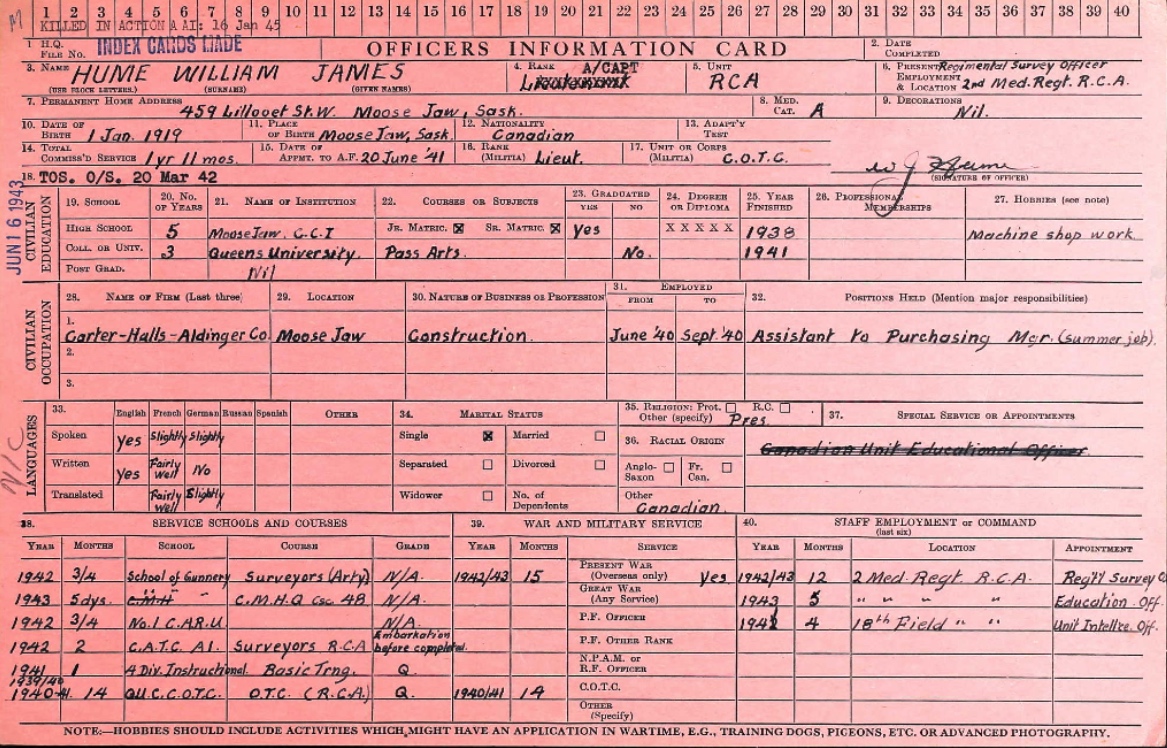 1 2 3 4 5 6 7 8 9 10 11 12 13 14 15 16 17 18 19 20 21 22 23 24 25 26 27 28 29 30 31 32 33 34 35 36 37 38 39 40
KILLED IN ACTION A AI: 16 Jan 45
INDEX CARDS MADE
1 H.Q. FILE NO. OFFICERS INFORMATION CARD 2. DATE COMPLETED
3. NAME HUME WILLIAM JAMES 4. RANK A/CAPT 5. UNIT RCA 6. PRESENT EMPLOYMENT & LOCATION Regimental Survey Officer 2nd Med. Regt. R.C.A.
(USE BLOCK LETTERS.) (SURNAME) (GIVEN NAMES)
7. PERMANENT HOME ADDRESS 459 Lillooet St. W. Moose Jaw, Sask. 8. MED. CAT. A 9. DECORATIONS Nil.
10. DATE OF BIRTH 1 Jan. 1919 11. PLACE OF BIRTH Moose Jaw, Sask. 12. NATIONALITY Canadian 13. ADAP'Y TEST
14. TOTAL COMMISS'D SERVICE 1 yr 11 mos. 15. DATE OF APPMT. TO A.F. 20 June '41 16. RANK (MILITIA) Lieut. 17. UNIT OR CORPS (MILITIA) C.O.T.C.
W J Hume
(SIGNATURE OF OFFICER)
18. TOS. O/S. 20 Mar 42
JUN 16 1943
CIVILIAN EDUCATION
19. SCHOOL 20. NO. OF YEARS 21. NAME OF INSTITUTION 22. COURSES OR SUBJECTS 23. GRADUATED YES NO 24. DEGREE OR DIPLOMA 25. YEAR FINISHED 26. PROFESSIONAL MEMBERSHIPS 27. HOBBIES (see note)
HIGH SCHOOL 5 Moose Jaw. C.C.I JR. MATRIC. ☒ SR. MATRIC. ☒ Yes X X X X X 1938 Machine shop work
COLL. OR UNIV. 3 Queens University. Pass Arts. No. 1941
POST GRAD. Nil
CIVILIAN OCCUPATION
28. NAME OF FIRM (Last three) 29. LOCATION 30. NATURE OF BUSINESS OR PROFESSION 31. EMPLOYED FROM TO 32. POSITIONS HELD (Mention major responsibilities)
1. Carter-Halls-Aldinger Co. Moose Jaw Construction. June '40 Sept. '40 Assistant to Purchasing Mgr. (summer job).
2.
3.
N/C
LANGUAGES
33. English French German Russian Spanish OTHER 34. MARITAL STATUS 35. RELIGION: Prot. ☐ R.C. ☐ Other (specify) Pres. 37. SPECIAL SERVICE OR APPOINTMENTS
Spoken Yes Slightly Slightly Single ☒ Married ☐ 36. RACIAL ORIGIN Canadian Unit Educational Officer.
Written Yes Fairly well No Separated ☐ Divorced ☐ Anglo-Saxon ☐ Fr. Can. ☐
Translated Fairly well Slightly Widower ☐ No. of Dependents Other Canadian.
38. SERVICE SCHOOLS AND COURSES 39. WAR AND MILITARY SERVICE 40. STAFF EMPLOYMENT or COMMAND (last six)
YEAR MONTHS SCHOOL COURSE GRADE YEAR MONTHS SERVICE YEAR MONTHS LOCATION APPOINTMENT
1942 3/4 School of Gunnery Surveyors (Arty) N/A. 1942/43 15 PRESENT WAR (Overseas only) Yes 1942/43 12 2 Med. Regt. R.C.A. Regt'l Survey O
1943 5 dys. C.M.H " C.M.H.Q Csc 48 N/A. GREAT WAR (Any Service) 1943 5 " " " " Education Off.
1942 3/4 No. 1 C.A.R.U. N/A. P.F. OFFICER 1942 4 18th Field " " Unit Intellxe. Off.
1942 2 C.A.T.C. A1. Surveyors R.C.A Embarkation before completed. P.F. OTHER RANK
1941 1 A Div. Instructional. Basic Trng. Q. N.P.A.M. or R.F. OFFICER
1939/40 1940-41. 14 QU.C.C.O.T.C. O.T.C. (R.C.A.) Q. 1940/41 14 C.O.T.C.
OTHER (Specify)
NOTE:—HOBBIES SHOULD INCLUDE ACTIVITIES WHICH MIGHT HAVE AN APPLICATION IN WARTIME, E.G., TRAINING DOGS, PIGEONS, ETC. OR ADVANCED PHOTOGRAPHY.